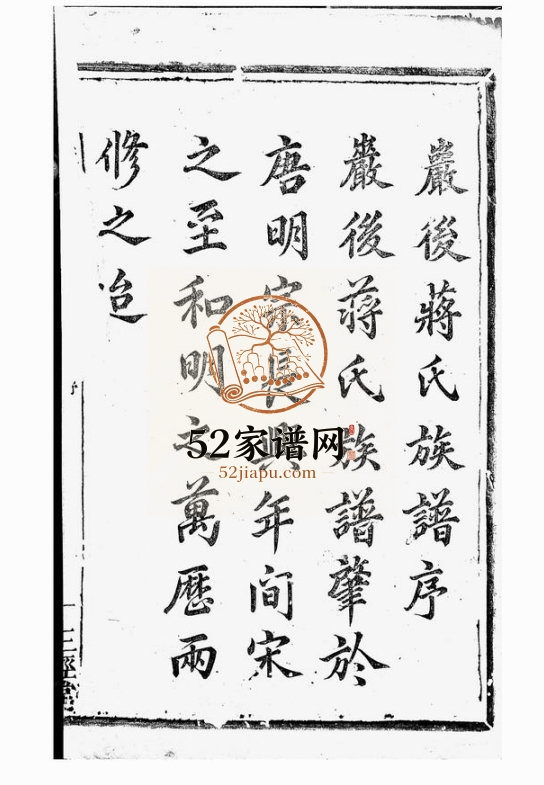 巖後蔣氏族譜序
巖後蔣氏族譜肇於
唐明宗長興年间宋
之至和明之萬歷兩
修之迨
序
三徑堂
52家谱网
52jiapu.com